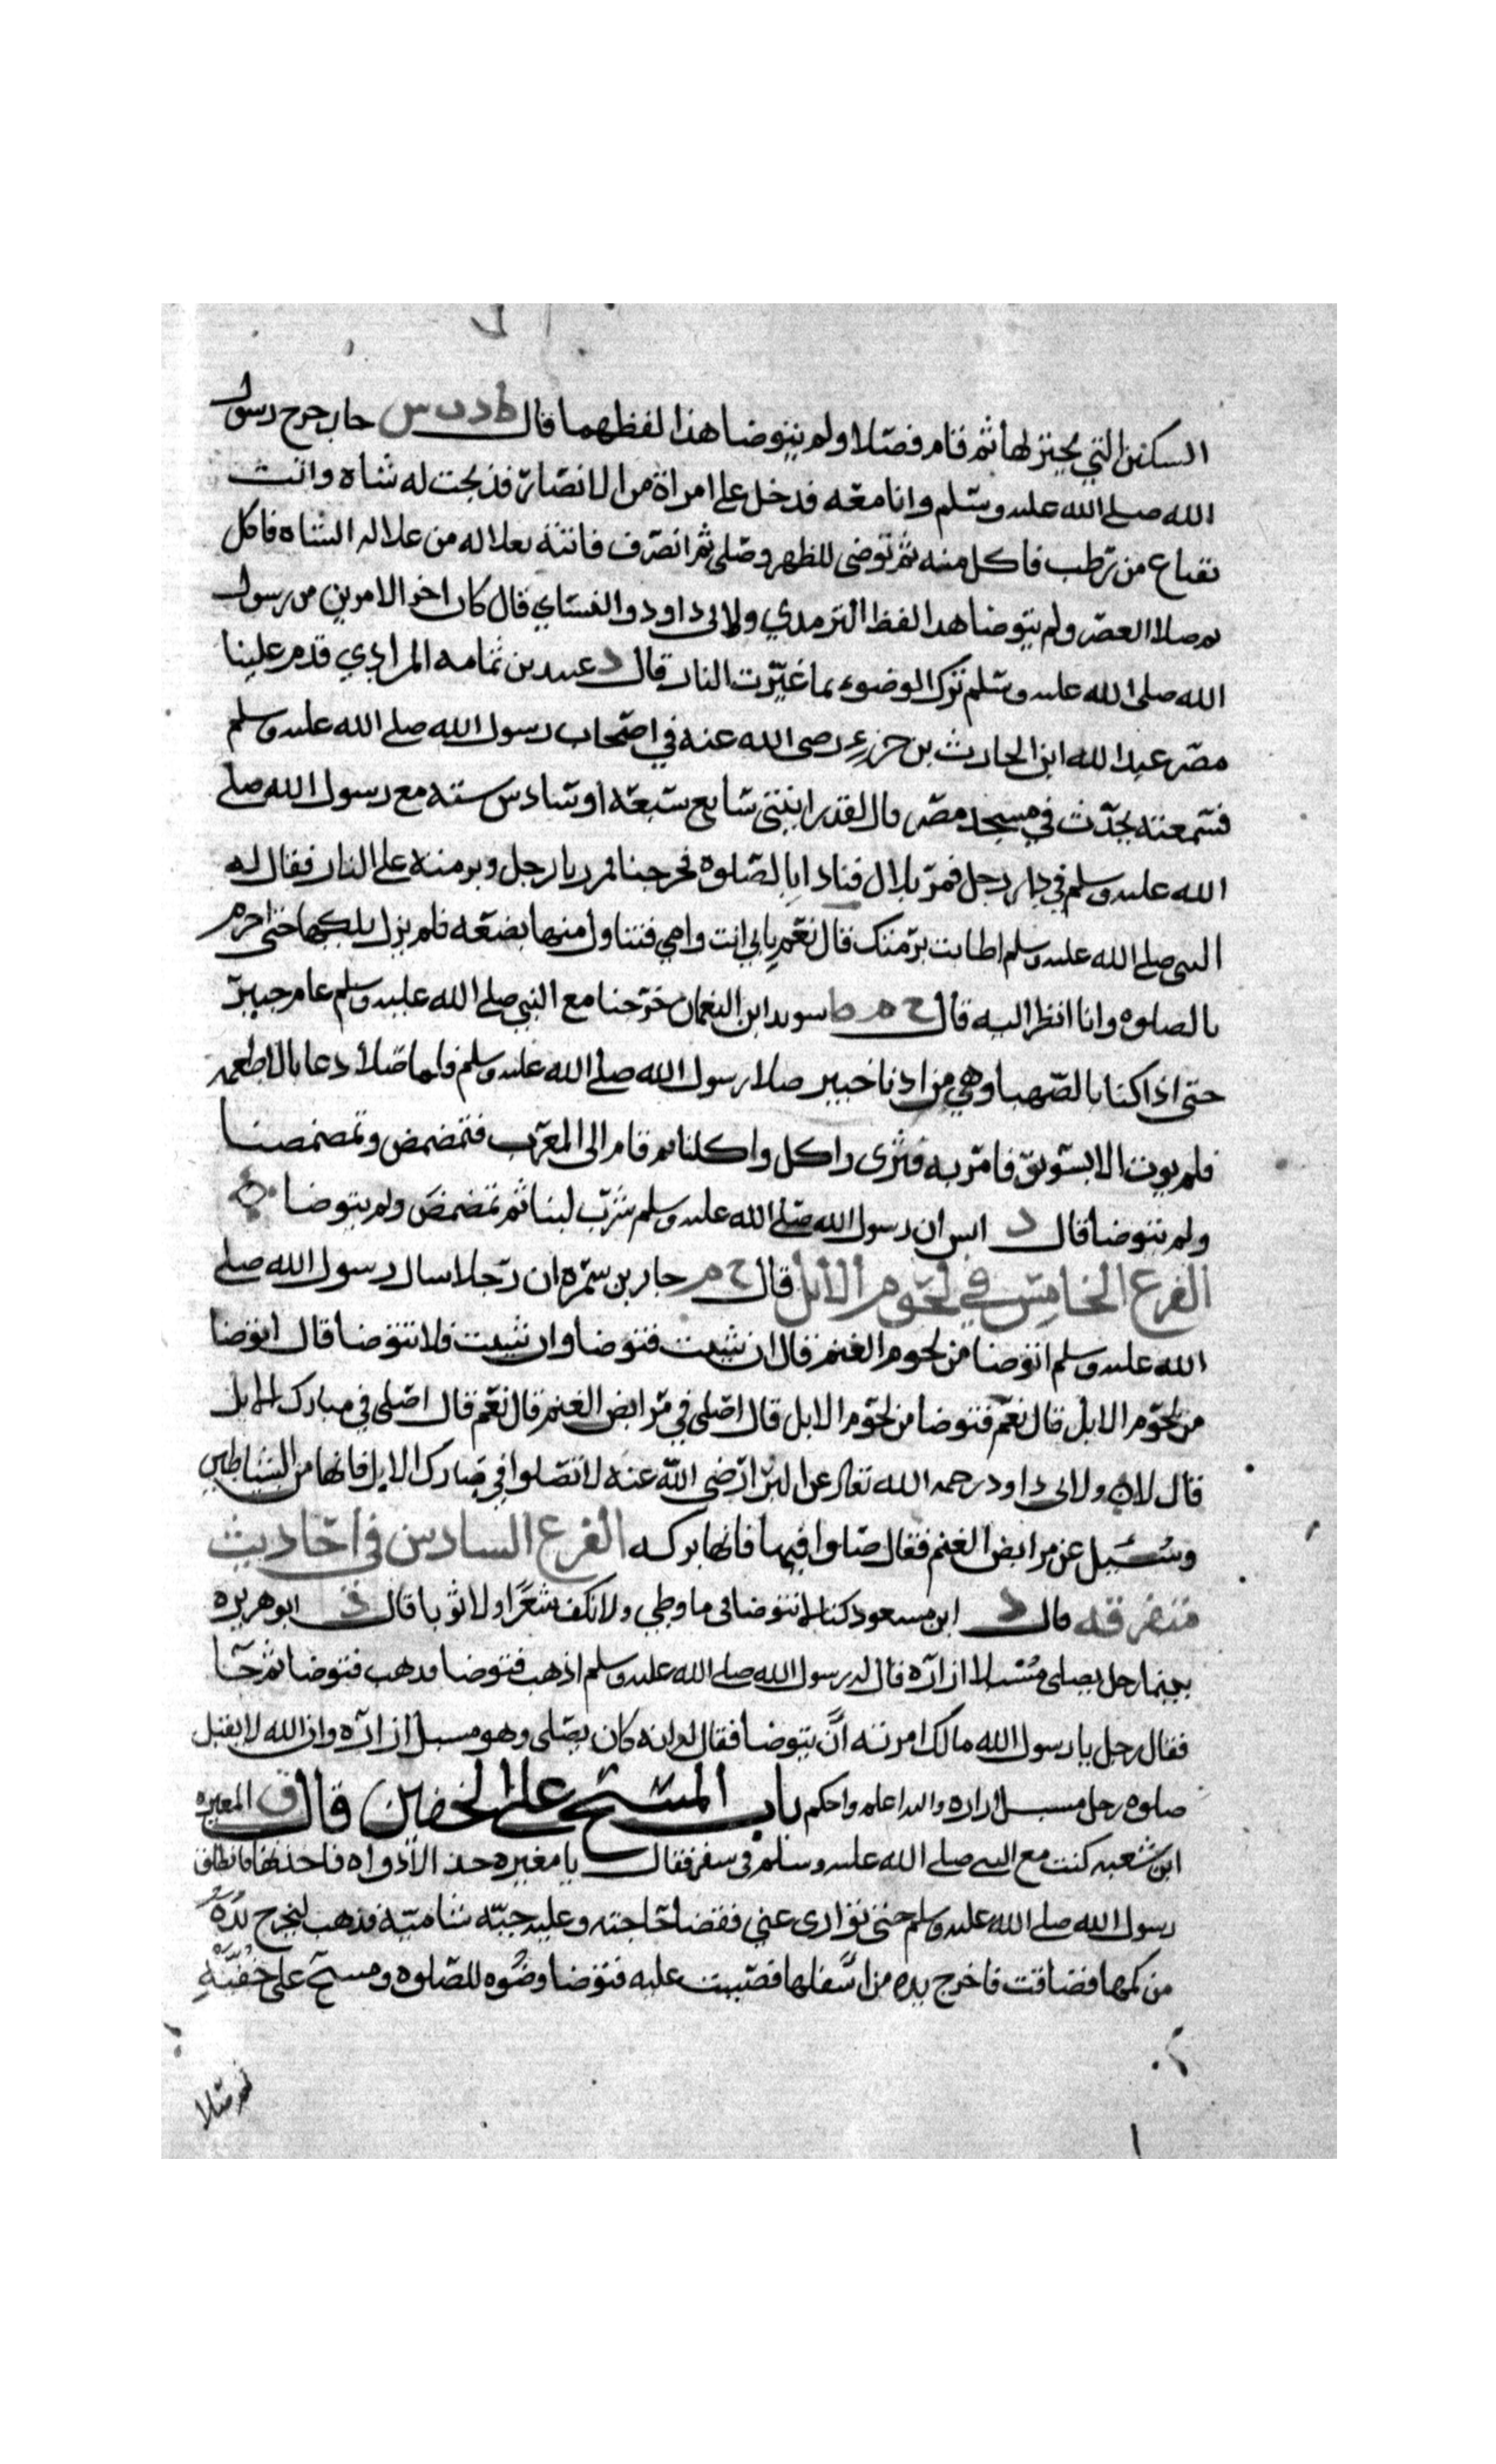 السكين التي يحتز لها ثم قام فصلا ولم يتوضا هذا لفظهما قال ط د ت س جابر خرج رسول
الله صلى الله عليه وسلم وانا معه فدخل على امراة من الانصار فذبحت له شاة واتت
بقناع من رطب فاكل منه ثم توضى للظهر وصلى ثم انصرف فاتته بعلاله من علالة الشاه فاكل
ثم صلا العصر ولم يتوضا هذا لفظ الترمذي ولابى داود والنساي قال كان اخر الامرين من رسول
الله صلى الله عليه وسلم ترك الوضوء مما غيرت النار قال د عبيد بن ثمامه المرادي قدم علينا
مصر عبد الله ابن الحارث بن جزء رضى الله عنه في اصحاب رسول الله صلى الله عليه وسلم
فسمعته يحدث في مسجد مصر قال لقد رايتني سابع سبعة او سادس سته مع رسول الله صلى
الله عليه وسلم في دار رجل فمر بلال فنادا بالصلوه فخرجنا فمررنا برجل وبرمته على النار فقال له
النبى صلى الله عليه وسلم اطابت برمتك قال نعم بابي انت وامي فتناول منها بضعه فلم يزل يلكها حتى احرم
بالصلوه وانا انظر اليه قال خ م ط سويد ابن النعمان خرجنا مع النبي صلى الله عليه وسلم عام خيبر
حتى اذا كنا بالصهبا وهي من ادنا خيبر صلا رسول الله صلى الله عليه وسلم فلما صلا دعا بالاطعمه
فلم يوت الا بسويق فامر به فثرى واكل واكلنا ثم قام الى المغرب فتمضمض وتمضمضنا
ولم نتوضا قال د انس ان رسول الله صلى الله عليه وسلم شرب لبنا ثم تمضمض ولم يتوضا
الفرع الخامس في لحوم الابل قال خ م جابر بن سمره ان رجلا سال رسول الله صلى
الله عليه وسلم انتوضا من لحوم الغنم قال ان شيت فتوضا وان شيت فلا تتوضا قال اتوضا
من لحوم الابل قال نعم فتوضا من لحوم الابل قال اصلى في مرابض الغنم قال نعم قال اصلى في مبارك الابل
قال لا ولابى داود رحمه الله تعالى عن البرا رضى الله عنه لا تصلوا في مبارك الابل فانها من الشياطين
وسيل عن مرابض الغنم فقال صلوا فيها فانها بركه الفرع السادس في احاديث
متفرقه قال د ابن مسعود كنا لا نتوضا من ما وطي ولا نكف شعرا ولا ثوبا قال د ابو هريره
بينما رجل يصلى مسبلا ازاره قال له رسول الله صلى الله عليه وسلم اذهب فتوضا فذهب فتوضا ثم جا
فقال رجل يا رسول الله مالك امرته ان يتوضا فقال له انه كان يصلى وهو مسبل ازاره وان الله لا يقبل
صلوه رجل مسبل ازاره والله اعلم واحكم باب المسح على الخفين قال ق المغيره
ابن شعبه كنت مع النبى صلى الله عليه وسلم في سفر فقال يا مغيره خذ الاداوه فاخذتها فانطلق
رسول الله صلى الله عليه وسلم حتى توارى عني فقضا حاجته وعليه جبه شامية فذهب ليخرج يده
من كمها فضاقت فاخرج يده من اسفلها فصببت عليه فتوضا وضوه للصلوه ومسح على خفيه
ثم صلا